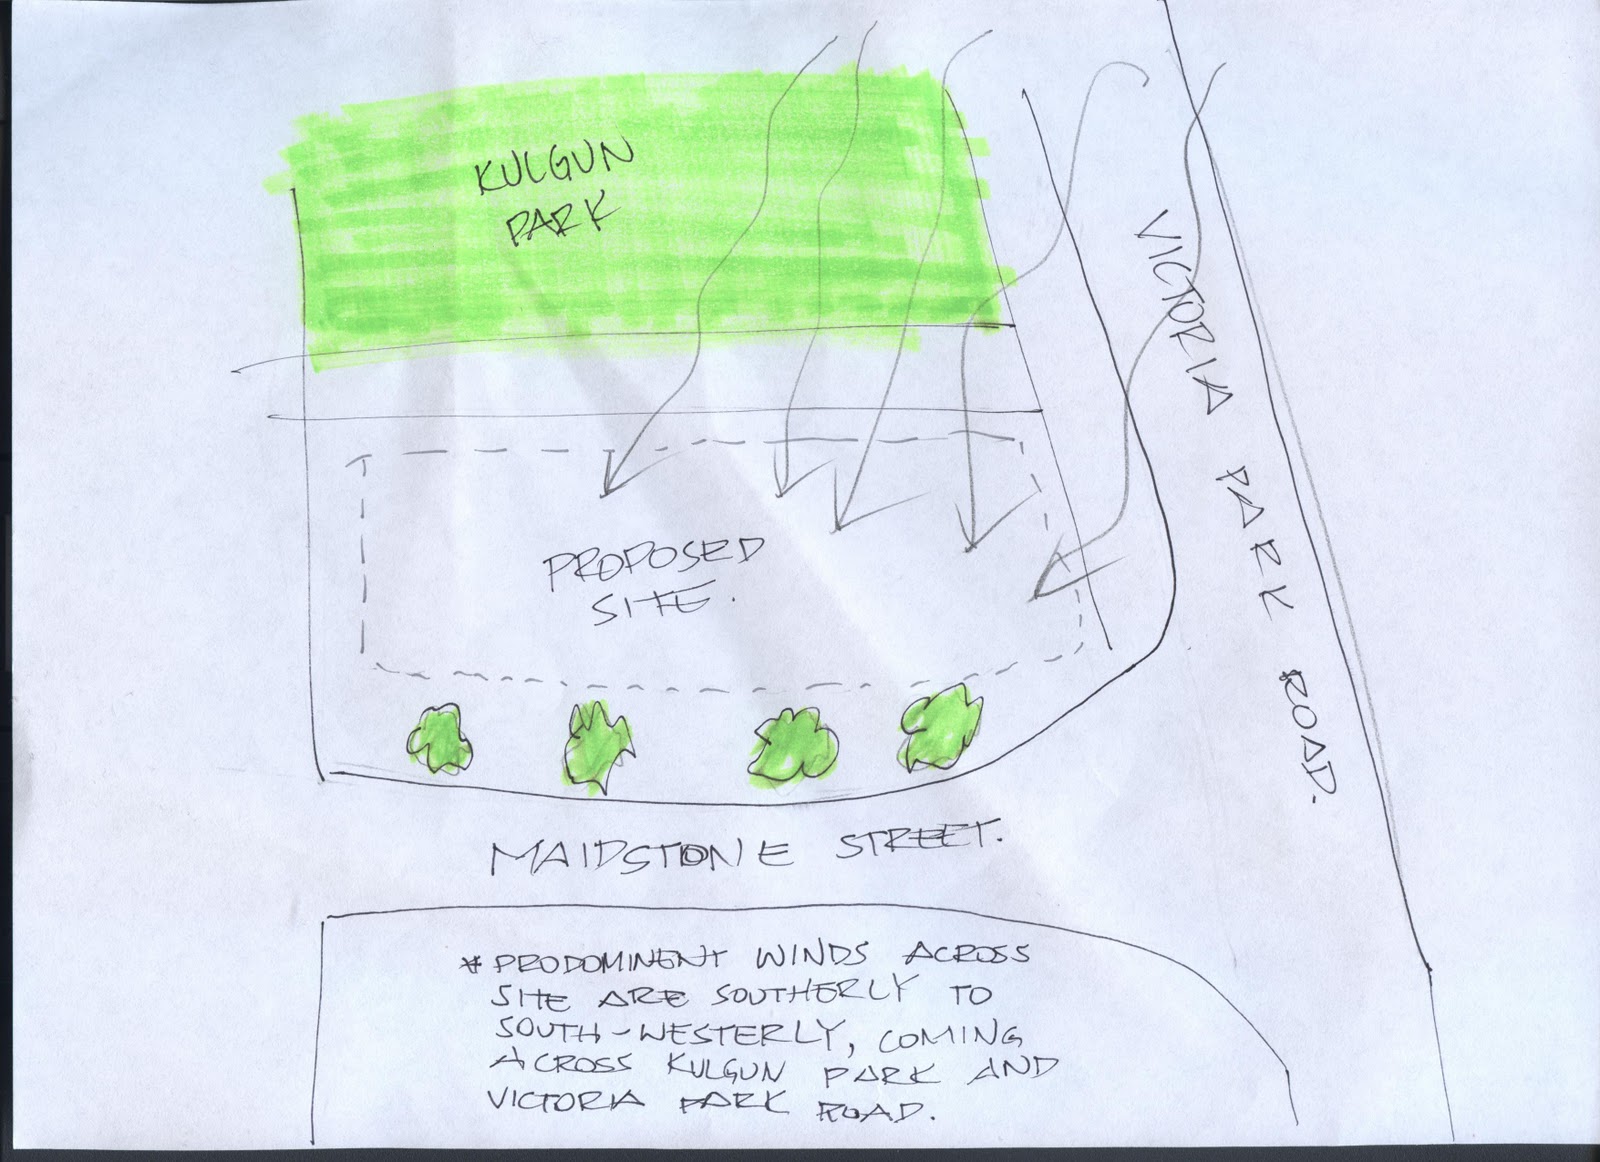 KULGUN
PARK
VICTORIA PARK ROAD.
PROPOSED
SITE.
MAIDSTONE STREET.
* PRODOMINENT WINDS ACROSS
SITE ARE SOUTHERLY TO
SOUTH-WESTERLY, COMING
ACROSS KULGUN PARK AND
VICTORIA PARK ROAD.